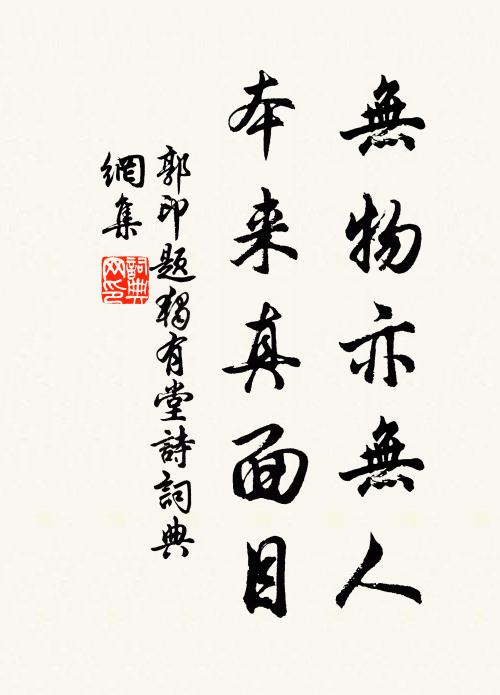 無物亦無人
本来真面目
郭印題獨有堂詩詞典
網集
詞典
网印